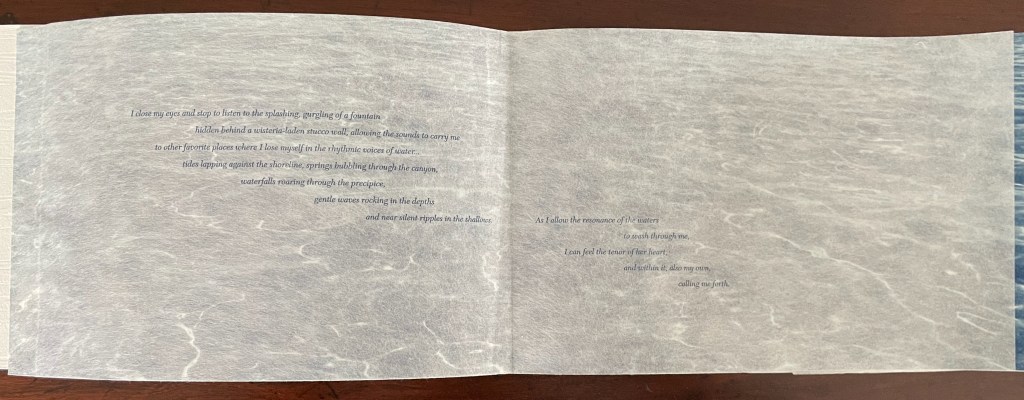 I close my eyes and stop to listen to the splashing, gurgling of a fountain
hidden behind a wisteria-laden stucco wall, allowing the sounds to carry me
to other favorite places where I lose myself in the rhythmic voices of water...
tides lapping against the shoreline, springs bubbling through the canyon,
waterfalls roaring through the precipice,
gentle waves rocking in the depths
and near silent ripples in the shallows.
As I allow the resonance of the waters
to wash through me,
I can feel the tenor of her heart,
and within it, also my own,
calling me forth.